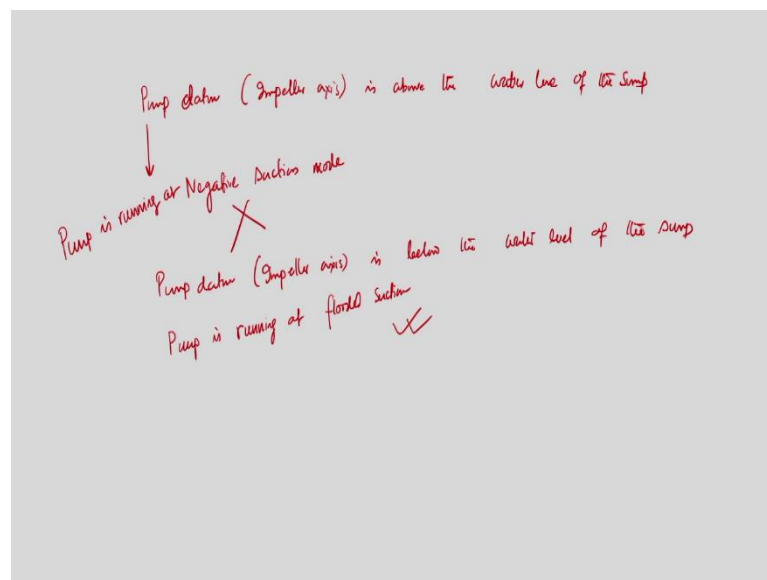 Pump datum (Impeller axis) is above the water level of the Sump
Pump is running at Negative suction mode
Pump datum (Impeller axis) is below the water level of the sump
Pump is running at flooded suction